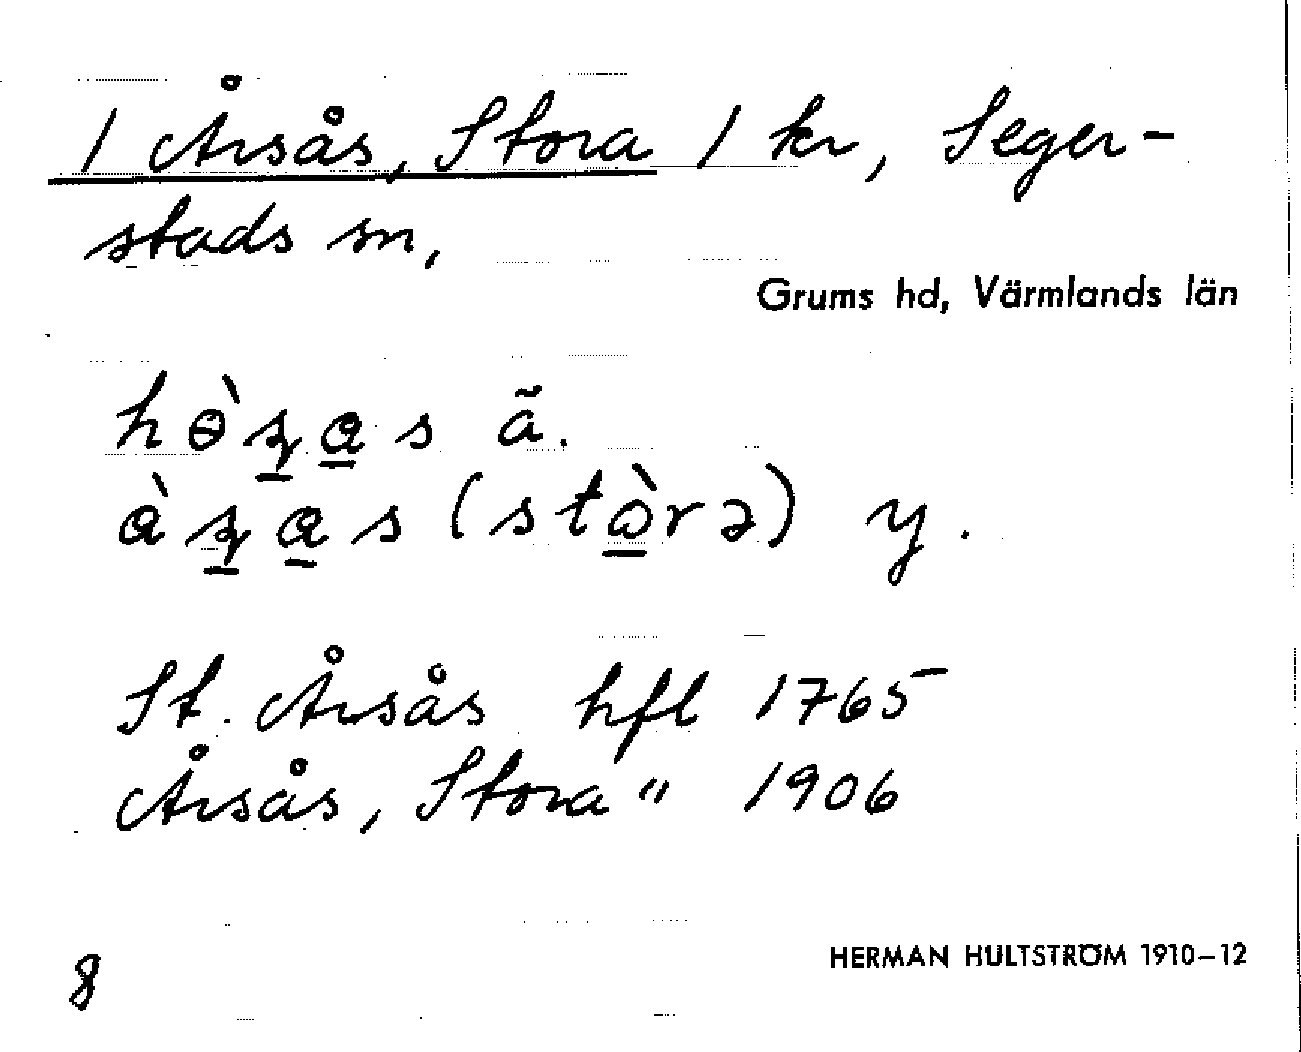 1 Årsås, Stora 1 kr, Seger-
stads sn,
Grums hd, Värmlands län
ã.
(stòrə) y.
St. Årsås hfl 1765
Årsås, Stora " 1906
8
HERMAN HULTSTRÖM 1910–12